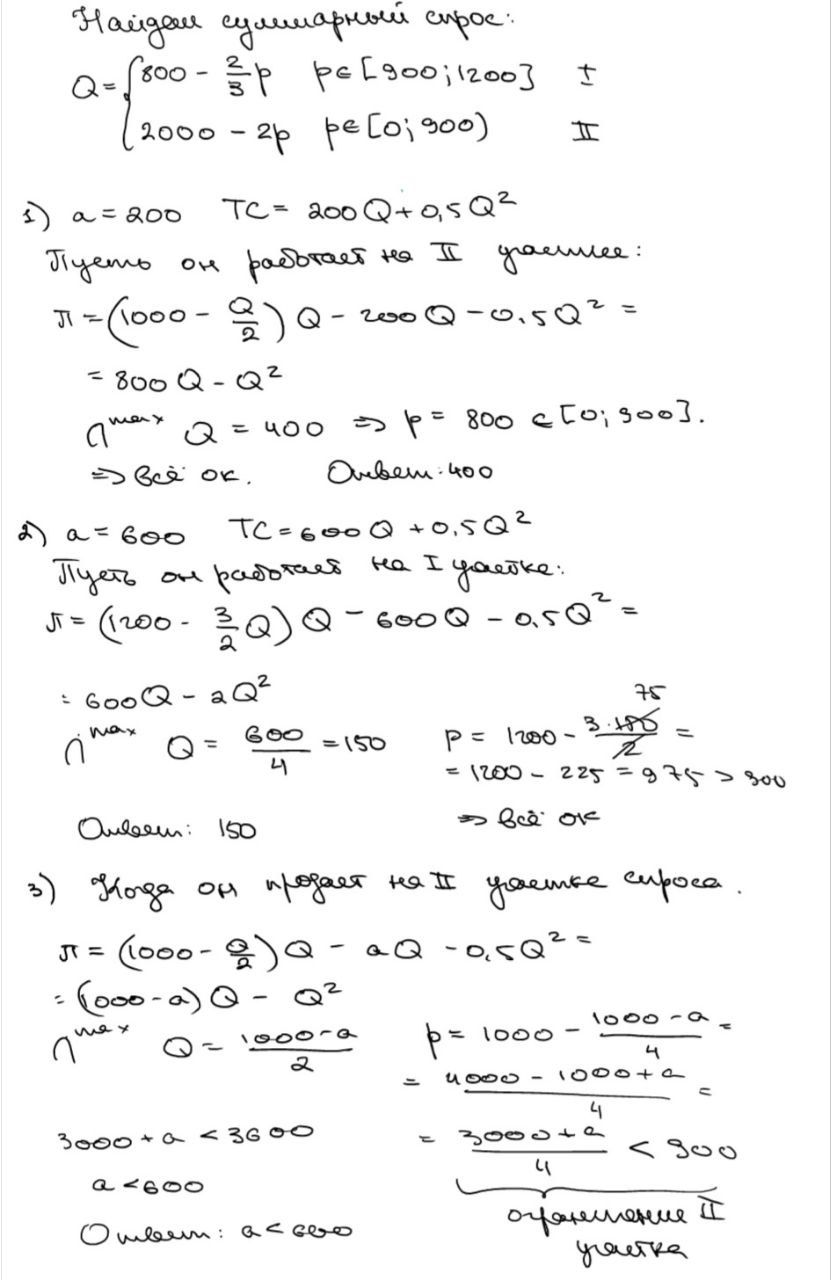 Найдем суммарный спрос:
Q = { 800 - 2/3 p   p∈[900;1200]   I
2000 - 2p   p∈[0;900)   II
1) a = 200   TC = 200Q + 0,5Q²
Пусть он работает на II участке:
π = (1000 - Q/2) Q - 200Q - 0.5Q² =
= 800Q - Q²
∩ max Q = 400 => p = 800 ∈ [0;900].
=> всё ок.   Ответ: 400
2) a = 600   TC = 600Q + 0,5Q²
Пусть он работает на I участке:
π = (1200 - 3/2 Q) Q - 600Q - 0.5Q² =
= 600Q - 2Q²
∩ max Q = 600/4 = 150   p = 1200 - 3·150/2 = 75
= 1200 - 225 = 975 > 900
Ответ: 150   => всё ок
3) Когда он продает на II участке спроса.
π = (1000 - Q/2) Q - aQ - 0,5Q² =
= (1000-a) Q - Q²
∩ max Q = 1000-a/2   p = 1000 - 1000-a/4 =
= 4000 - 1000 + a/4 =
3000 + a < 3600   = 3000 + a/4 < 900
a < 600
Ответ: a < 600   ограничение II
участка